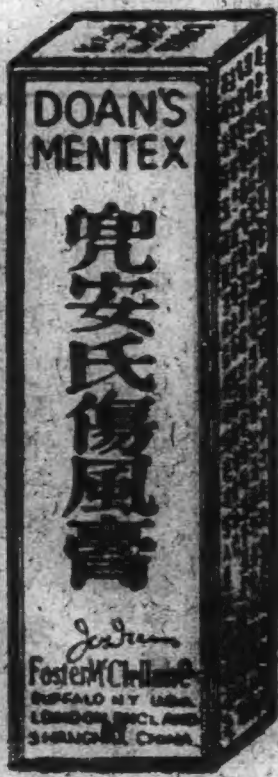 DOAN'S
MENTEX
兜安氏傷風膏
Foster McClellan Co
BUFFALO N.Y. U.S.A.
LONDON, ENGLAND
SHANGHAI CHINA